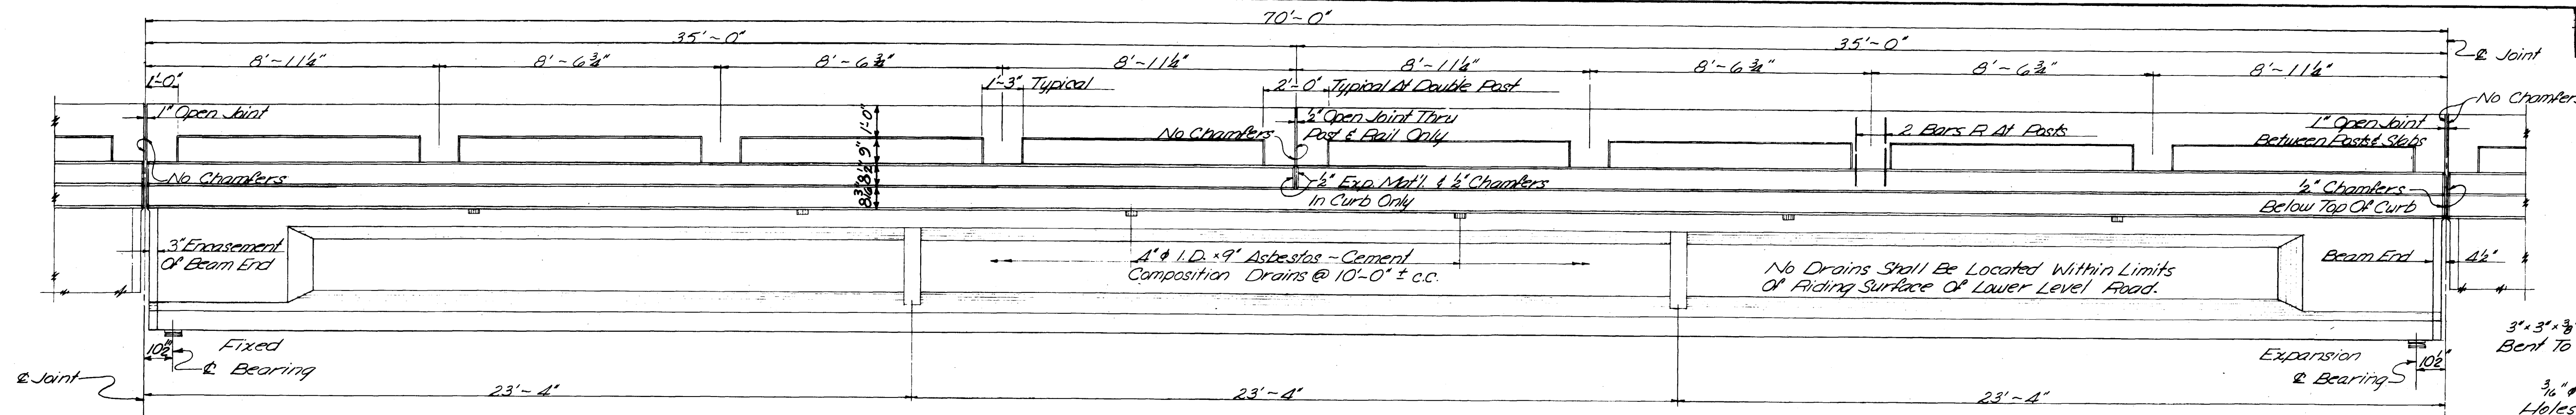 70'-0"
35'-0" 35'-0"
₵ Joint
8'-11¼" 8'-6¾" 8'-6¾" 8'-11¼" 8'-11¼" 8'-6¾" 8'-6¾" 8'-11¼"
1'-0" 1'-3" Typical 2'-0" Typical At Double Post
No Chamfers
1" Open Joint
1'-0"
9"
½" Open Joint Thru
Post & Rail Only
No Chamfers
2 Bars R At Posts
1" Open Joint
Between Posts & Slabs
No Chamfers
½" Exp. Mat'l. & ½" Chamfers
In Curb Only
½" Chamfers
Below Top Of Curb
3" Encasement
Of Beam End
4"φ I.D. x 9" Asbestos-Cement
Composition Drains @ 10'-0" ± c.c.
No Drains Shall Be Located Within Limits
Of Riding Surface Of Lower Level Road.
Beam End
4½"
10½"
Fixed
₵ Bearing
Expansion
₵ Bearing
10½"
3" x 3" x ⅜
Bent To
₵ Joint
23'-4" 23'-4" 23'-4"
3/16" φ
Holes